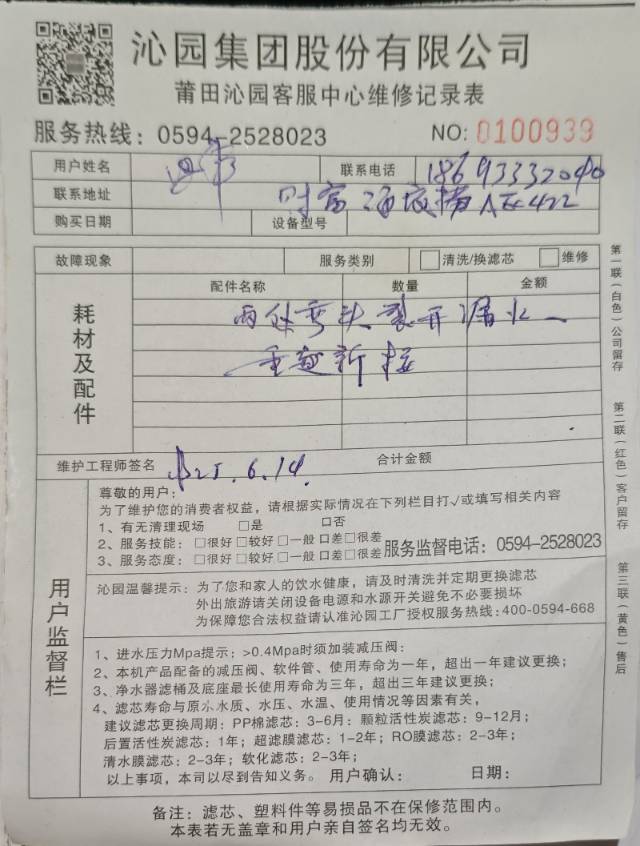 沁园集团股份有限公司
莆田沁园客服中心维修记录表
服务热线：0594-2528023 NO: 0100939
用户姓名 联系电话 18693332040
联系地址 财富
购买日期 设备型号
故障现象 服务类别 □清洗/换滤芯 □维修
耗材及配件 配件名称 数量 金额
两处弯头裂开漏水
重新接
维护工程师签名 25.6.14. 合计金额
用户监督栏
尊敬的用户：
为了维护您的消费者权益，请根据实际情况在下列栏目打√或填写相关内容
1、有无清理现场 □是 □否
2、服务技能：□很好□较好□一般□差□很差
3、服务态度：□很好□较好□一般□差□很差 服务监督电话：0594-2528023
沁园温馨提示：为了您和家人的饮水健康，请及时清洗并定期更换滤芯
外出旅游请关闭设备电源和水源开关避免不必要损坏
为保障您合法权益请认准沁园工厂授权服务热线：400-0594-668
1、进水压力Mpa提示：>0.4Mpa时须加装减压阀：
2、本机产品配备的减压阀、软件管、使用寿命为一年，超出一年建议更换；
3、净水器滤桶及底座最长使用寿命为三年，超出三年建议更换；
4、滤芯寿命与原水水质、水压、水温、使用情况等因素有关，
建议滤芯更换周期：PP棉滤芯：3-6月：颗粒活性炭滤芯：9-12月；
后置活性炭滤芯：1年；超滤膜滤芯：1-2年；RO膜滤芯：2-3年；
清水膜滤芯：2-3年；软化滤芯：2-3年；
以上事项，本司以尽到告知义务。用户确认： 日期：
备注：滤芯、塑料件等易损品不在保修范围内。
本表若无盖章和用户亲自签名均无效。
第一联（白色）公司留存
第二联（红色）客户留存
第三联（黄色）售后